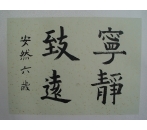 寧靜
致遠
安然六歲